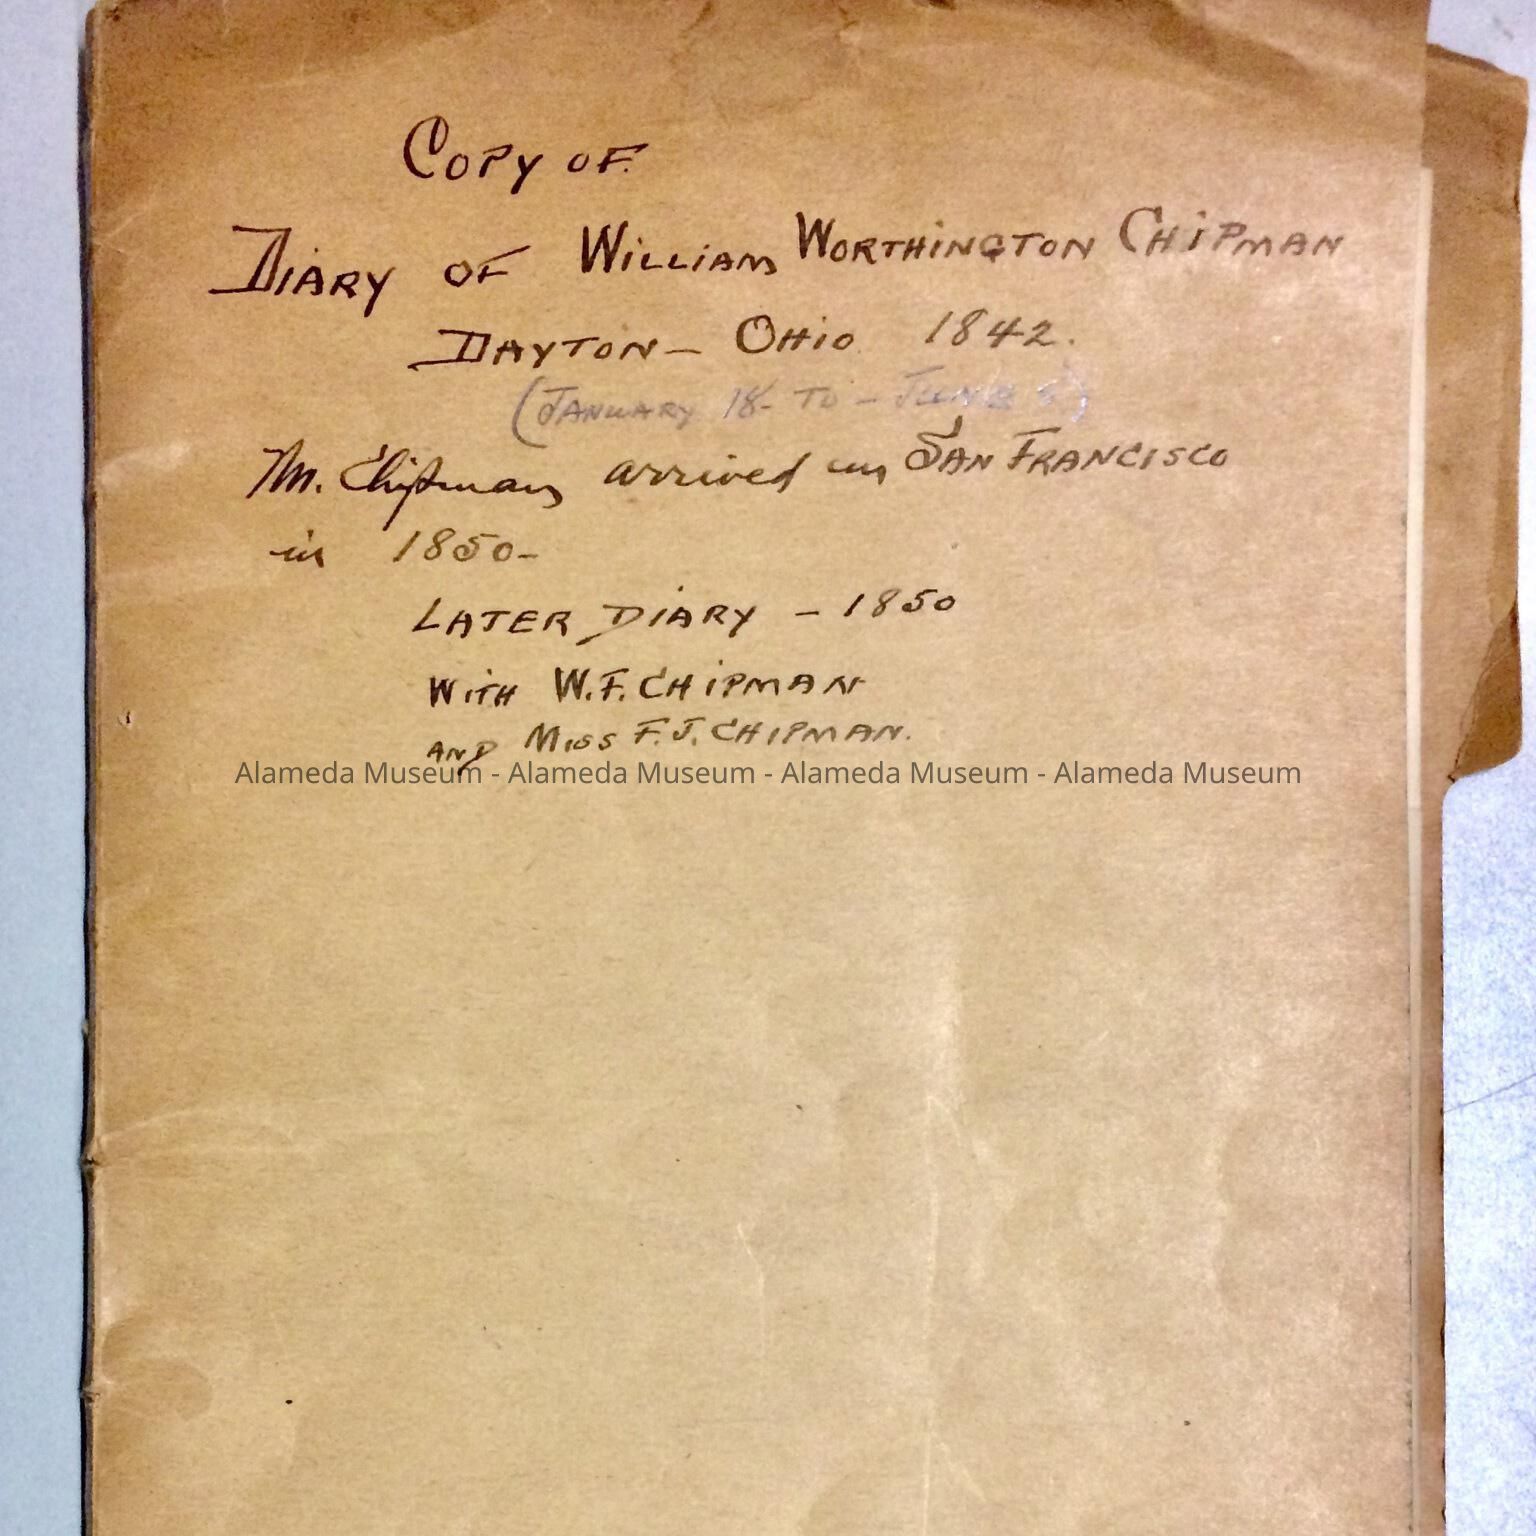 Copy of
Diary of William Worthington Chipman
Dayton – Ohio 1842.
(January 18 to – June
M. Chipman arrived in San Francisco
in 1850–
Later Diary – 1850
with W.F. Chipman
and Miss F.J. Chipman.
Alameda Museum - Alameda Museum - Alameda Museum - Alameda Museum